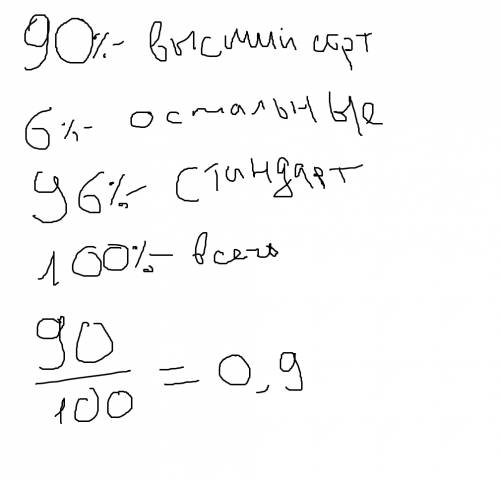 90%- высший сорт
6%- остальные
96%- стандарт
100%- всего
90/100 = 0,9